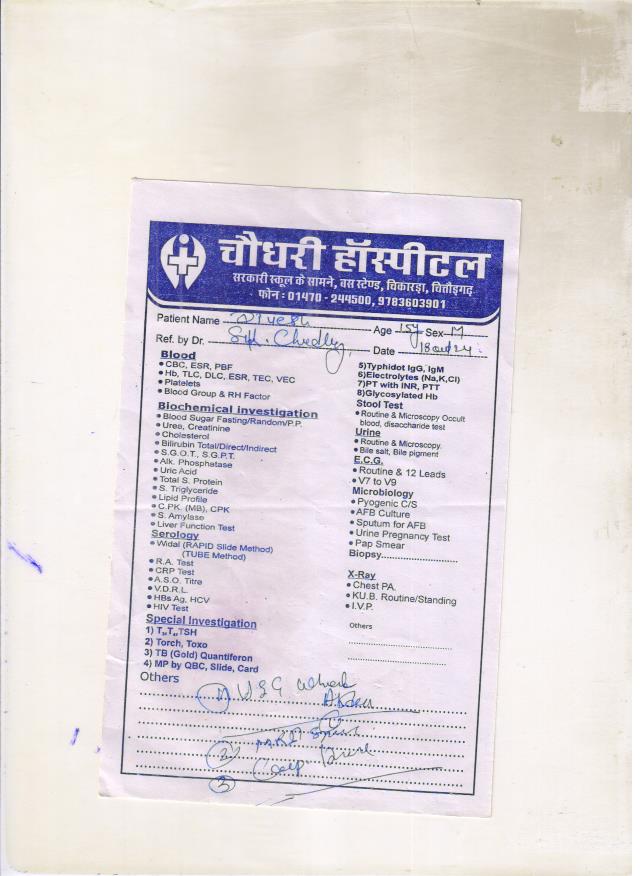 चौधरी हॉस्पीटल
सरकारी स्कूल के सामने, बस स्टेण्ड, चिकारड़ा, चित्तौड़गढ़
फोन : 01470 - 244500, 9783603901
Patient Name Age 15y Sex M
Ref. by Dr. Date 18
Blood
• CBC, ESR, PBF
• Hb, TLC, DLC, ESR, TEC, VEC
• Platelets
• Blood Group & RH Factor
Biochemical investigation
• Blood Sugar Fasting/Random/P.P.
• Urea, Creatinine
• Cholesterol
• Bilirubin Total/Direct/Indirect
• S.G.O.T., S.G.P.T.
• Alk. Phosphatase
• Uric Acid
• Total S. Protein
• S. Triglyceride
• Lipid Profile
• C.PK. (MB), CPK
• S. Amylase
• Liver Function Test
Serology
• Widal (RAPID Slide Method)
(TUBE Method)
• R.A. Test
• CRP Test
• A.S.O. Titre
• V.D.R.L.
• HBs Ag, HCV
• HIV Test
Special Investigation
1) T₃,T₄,TSH
2) Torch, Toxo
3) TB (Gold) Quantiferon
4) MP by QBC, Slide, Card
5)Typhidot IgG, IgM
6)Electrolytes (Na,K,Cl)
7)PT with INR, PTT
8)Glycosylated Hb
Stool Test
• Routine & Microscopy Occult
blood, disaccharide test
Urine
• Routine & Microscopy.
• Bile salt, Bile pigment
E.C.G.
• Routine & 12 Leads
• V7 to V9
Microbiology
• Pyogenic C/S
• AFB Culture
• Sputum for AFB
• Urine Pregnancy Test
• Pap Smear
Biopsy
X-Ray
• Chest PA.
• KU.B. Routine/Standing
• I.V.P.
Others
Others
1) USG whole
Abdo
2) MRI Spine
3